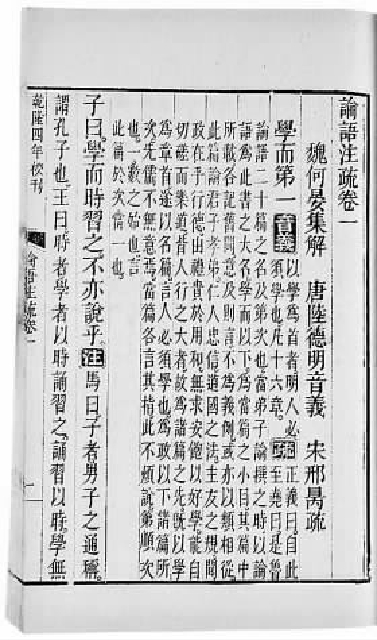 論語注疏卷一
魏何晏集解 唐陸德明音義 宋邢昺疏
學而第一
音義
以學爲首者明人必
須學也凡十六章
疏
正義曰自此
至堯曰是魯
論語二十篇之名及第次也當弟子論撰之時以論
語爲此書之大名學而以下爲當篇之小目其篇中
所載各記舊聞意及則言不爲義例或亦以類相從
此篇論君子孝弟仁人忠信道國之法主友之規聞
政在乎行德由禮貴於用和無求安飽以好學能自
切磋而樂道皆人行之大者故爲諸篇之先既以學
爲章首遂以名篇言人必須學也爲政以下諸篇所
次先儒不無意焉當篇各言其指此不煩說第順次
也一數之始也言
此篇於次當一也
子曰學而時習之不亦說乎
注
馬曰子者男子之通稱
謂孔子也王曰時者學者以時誦習之誦習以時學無
乾隆四年校刊
論語注疏卷一
一